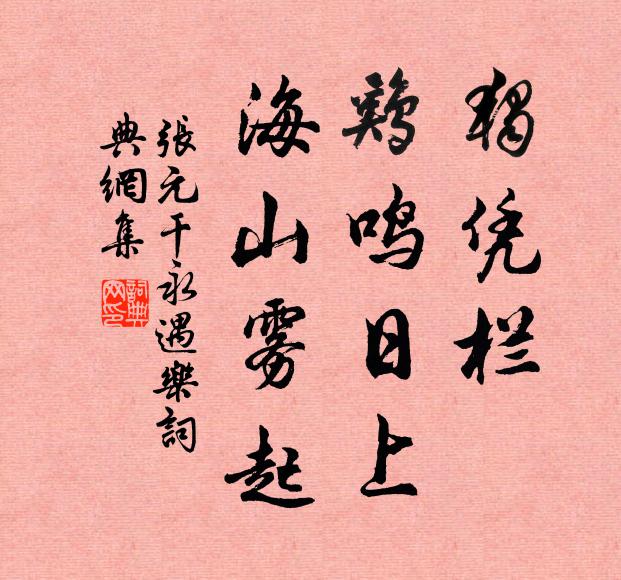 独凭栏
鸡鸣日上
海山雾起
張元干永遇樂詞
典網集
詞典网印